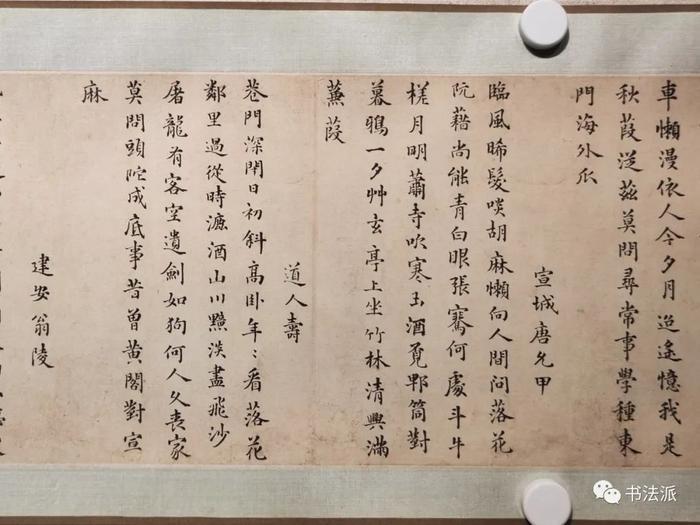 車懶漫依人今夕月迢遙憶我是
秋葭從茲莫問尋常事學種東
門海外瓜
宣城唐允甲
臨風晞髮啖胡麻懶向人間問落花
阮藉尚能青白眼張騫何處斗牛
槎月明蕭寺吹寒玉酒覓郫筒對
暮鴉一夕艸玄亭上坐竹林清興滿
蒹葭
道人壽
巷門深閉日初斜高卧年〻看落花
鄰里過從時漉酒山川黯淡盡飛沙
屠龍有客空遺劍如狗何人久喪家
莫問頭陀成底事昔曾黃閣對宣
麻
建安翁陵
书法派